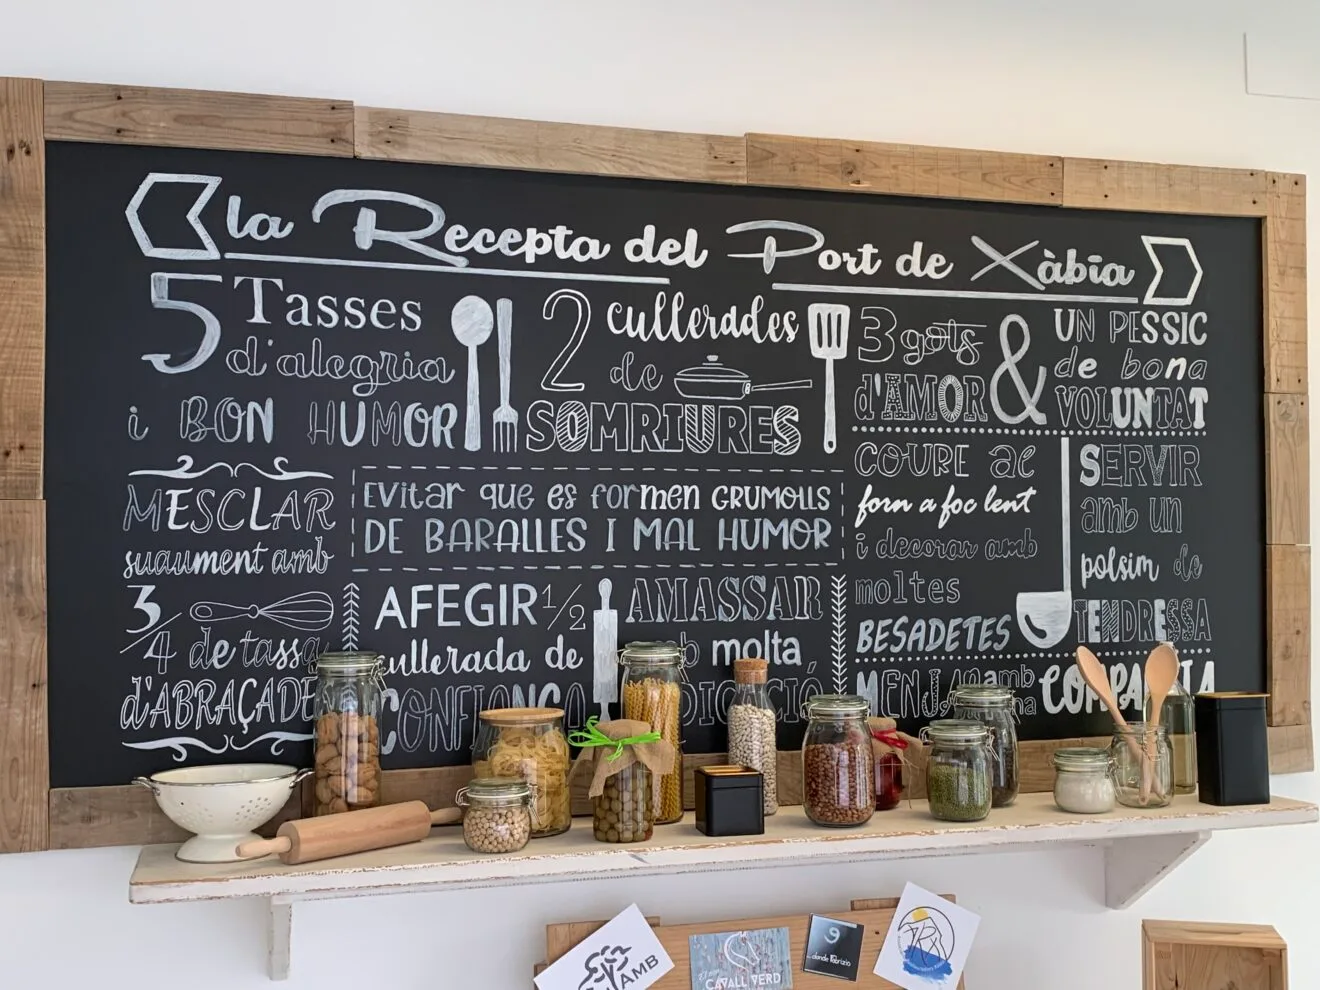 la Recepta del Port de Xàbia
5 Tasses
d'alegria
i BON HUMOR
2 cullerades
de
SOMRIURES
3 gots
d'AMOR
&
UN PESSIC
de bona
VOLUNTAT
MESCLAR
suaument amb
3/4 de tassa
d'ABRAÇADE
Evitar que es formen GRUMOLLS
DE BARALLES I MAL HUMOR
AFEGIR 1/2
cullerada de
CONFIANÇA
AMASSAR
molta
DICACIÓ
COURE al
forn a foc lent
i decorar amb
moltes
BESADETES
SERVIR
amb un
polsim de
TENDRESSA
MENJA amb
COMPA IA
AMB
CAVALL VERD
9
donde Fabrizio